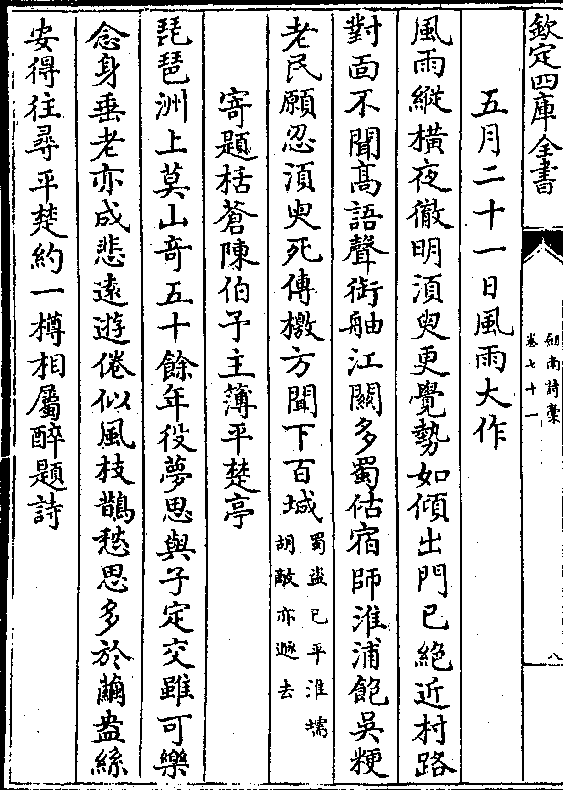 欽定四庫全書
劒南詩稾
卷七十一
八
五月二十一日風雨大作
風雨縱橫夜徹明須臾更覺勢如傾出門已絶近村路
對面不聞髙語聲銜舳江闗多蜀估宿師淮浦飽吳粳
老民願忍須臾死傳檄方聞下百城蜀盜已平淮壖
胡敵亦遁去
寄題栝蒼陳伯予主薄平楚亭
琵琶洲上莫山竒五十餘年役夢思與子定交雖可樂
念身垂老亦成悲遠遊倦似風枝鵲愁思多於繭盎絲
安得往尋平楚約一樽相屬醉題詩